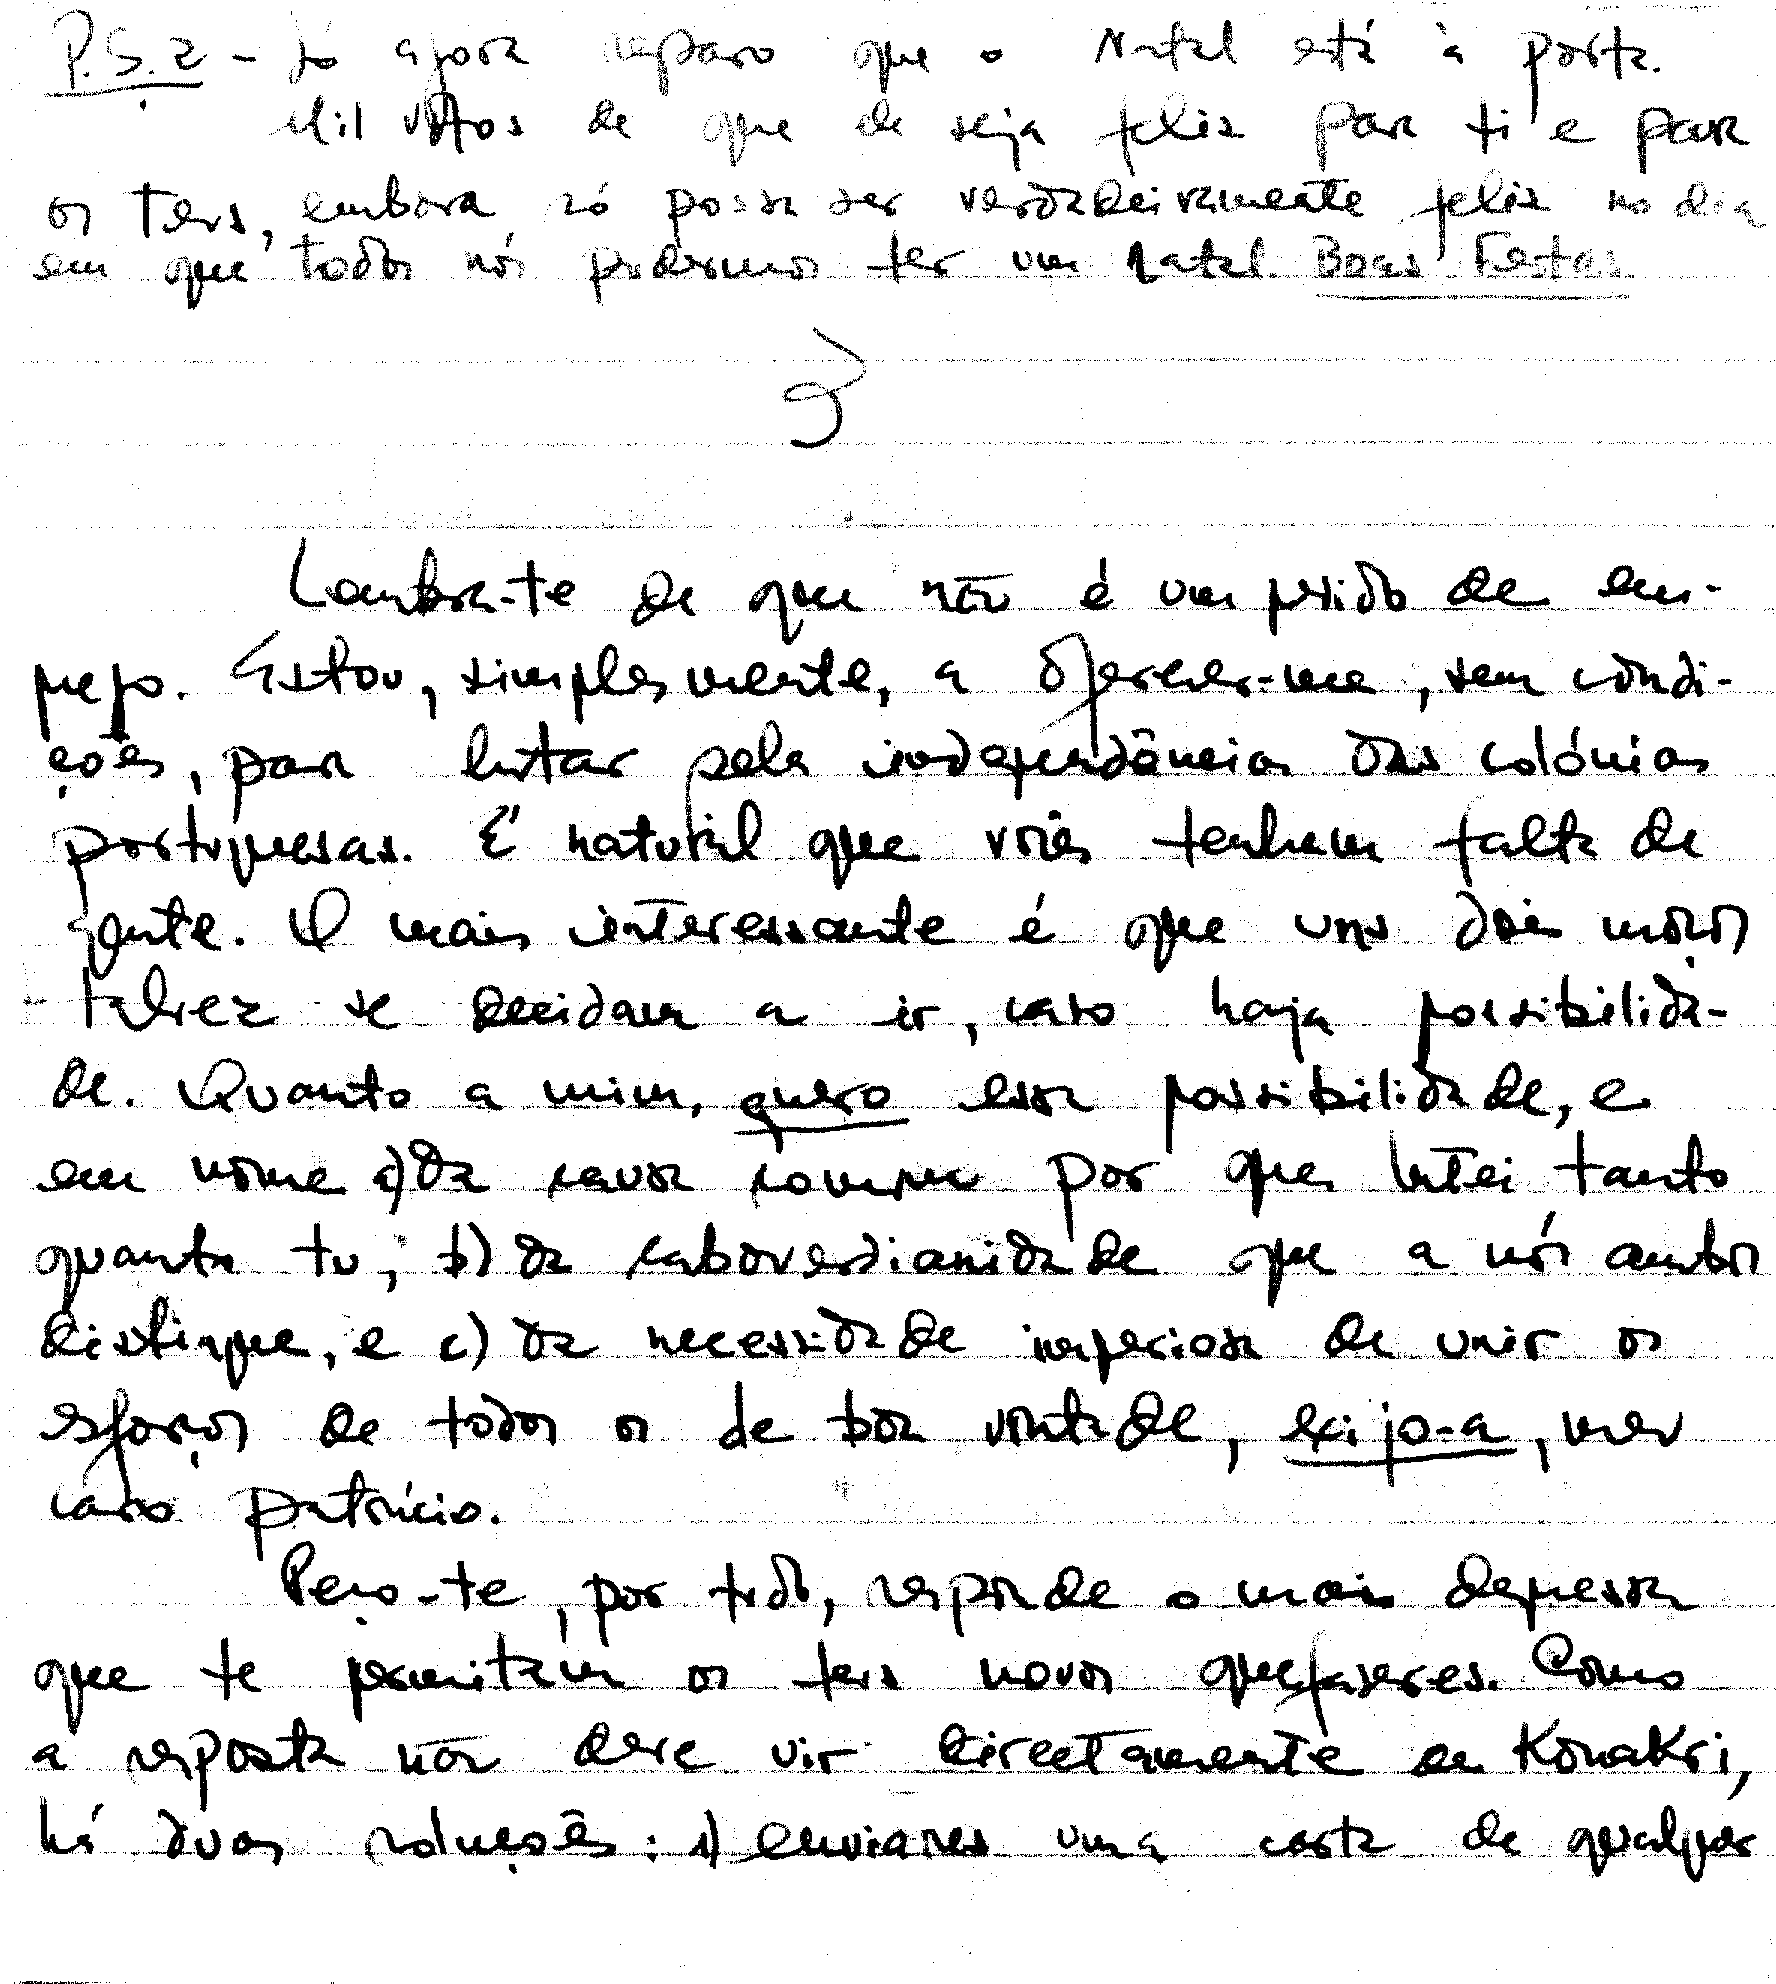 P.S.2 - Só agora reparo que o Natal está à porta.
Mil votos de que ele seja feliz para ti e para
os teus, embora só possa ser verdadeiramente feliz no dia
em que todos nós pudermos ter um Natal. Boas Festas
3
Lembra-te de que não é um pedido de em-
prego. Estou, simplesmente, a oferecer-me, sem condi-
ções, para lutar pela independência das colónias
portuguesas. É natural que vocês tenham falta de
gente. O mais interessante é que uns dois moços
talvez se decidam a ir, caso haja possibilida-
de. Quanto a mim, quero essa possibilidade, e
em nome a) da causa comum por que lutei tanto
quanto tu; b) da caboverdianidade que a nós ambos
distingue, e c) da necessidade imperiosa de unir os
esforços de todos os de boa vontade, exijo-a, meu
caro patrício.
Peço-te, por tudo, responde o mais depressa
que te permitam os teus novos quefazeres. Como
a resposta não deve vir directamente de Konakri,
há duas soluções: 1) enviares uma carta de qualquer